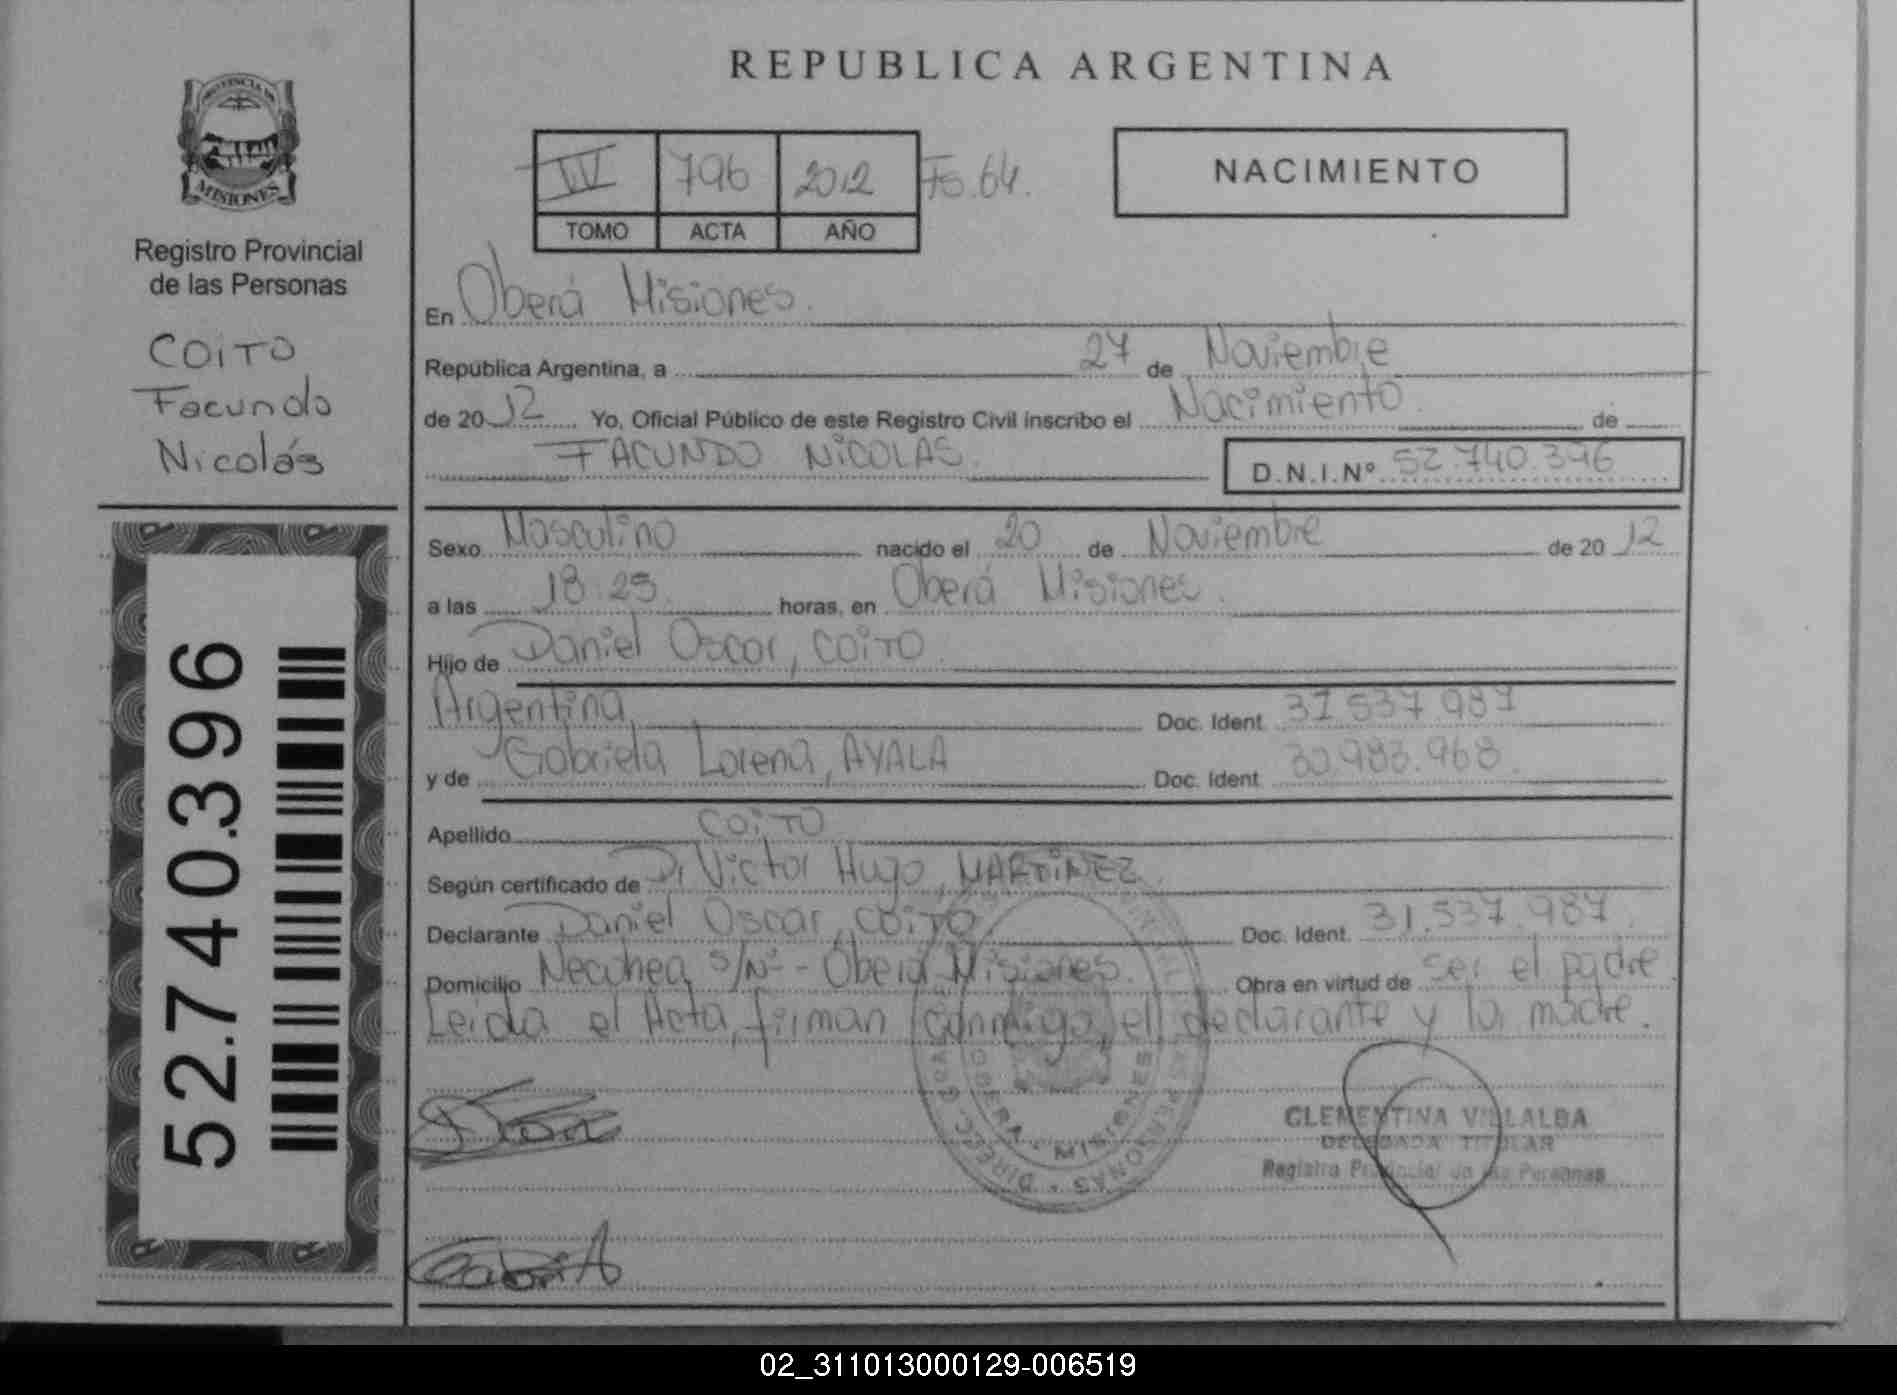 REPUBLICA ARGENTINA
PROVINCIA DE
MISIONES
Registro Provincial
de las Personas
COITO
Facundo
Nicolás
IV 796 2012 Fo. 64.
TOMO ACTA AÑO
NACIMIENTO
En Oberá Misiones.
República Argentina, a 27 de Noviembre
de 20 12 Yo, Oficial Público de este Registro Civil inscribo el Nacimiento de
FACUNDO NICOLAS. D.N.I.Nº 52.740.396
Sexo Masculino nacido el 20 de Noviembre de 20 12
a las 18:25 horas, en Oberá Misiones.
Hijo de Daniel Oscar, COITO
Argentina Doc. Ident. 31.537.987
y de Gabriela Lorena, AYALA Doc. Ident. 30.983.968.
Apellido COITO
Según certificado de Dr Victor Hugo, MARTINEZ.
Declarante Daniel Oscar, COITO Doc. Ident. 31.537.987.
Domicilio Necohea s/Nº - Oberá Misiones. Obra en virtud de ser el padre
Leida el Acta, firman conmigo, el declarante y la madre.
52.740.396
OBERA - MISIONES
CLEMENTINA VILLALBA
DELEGADA TITULAR
Registro Provincial de las Personas
02_311013000129-006519